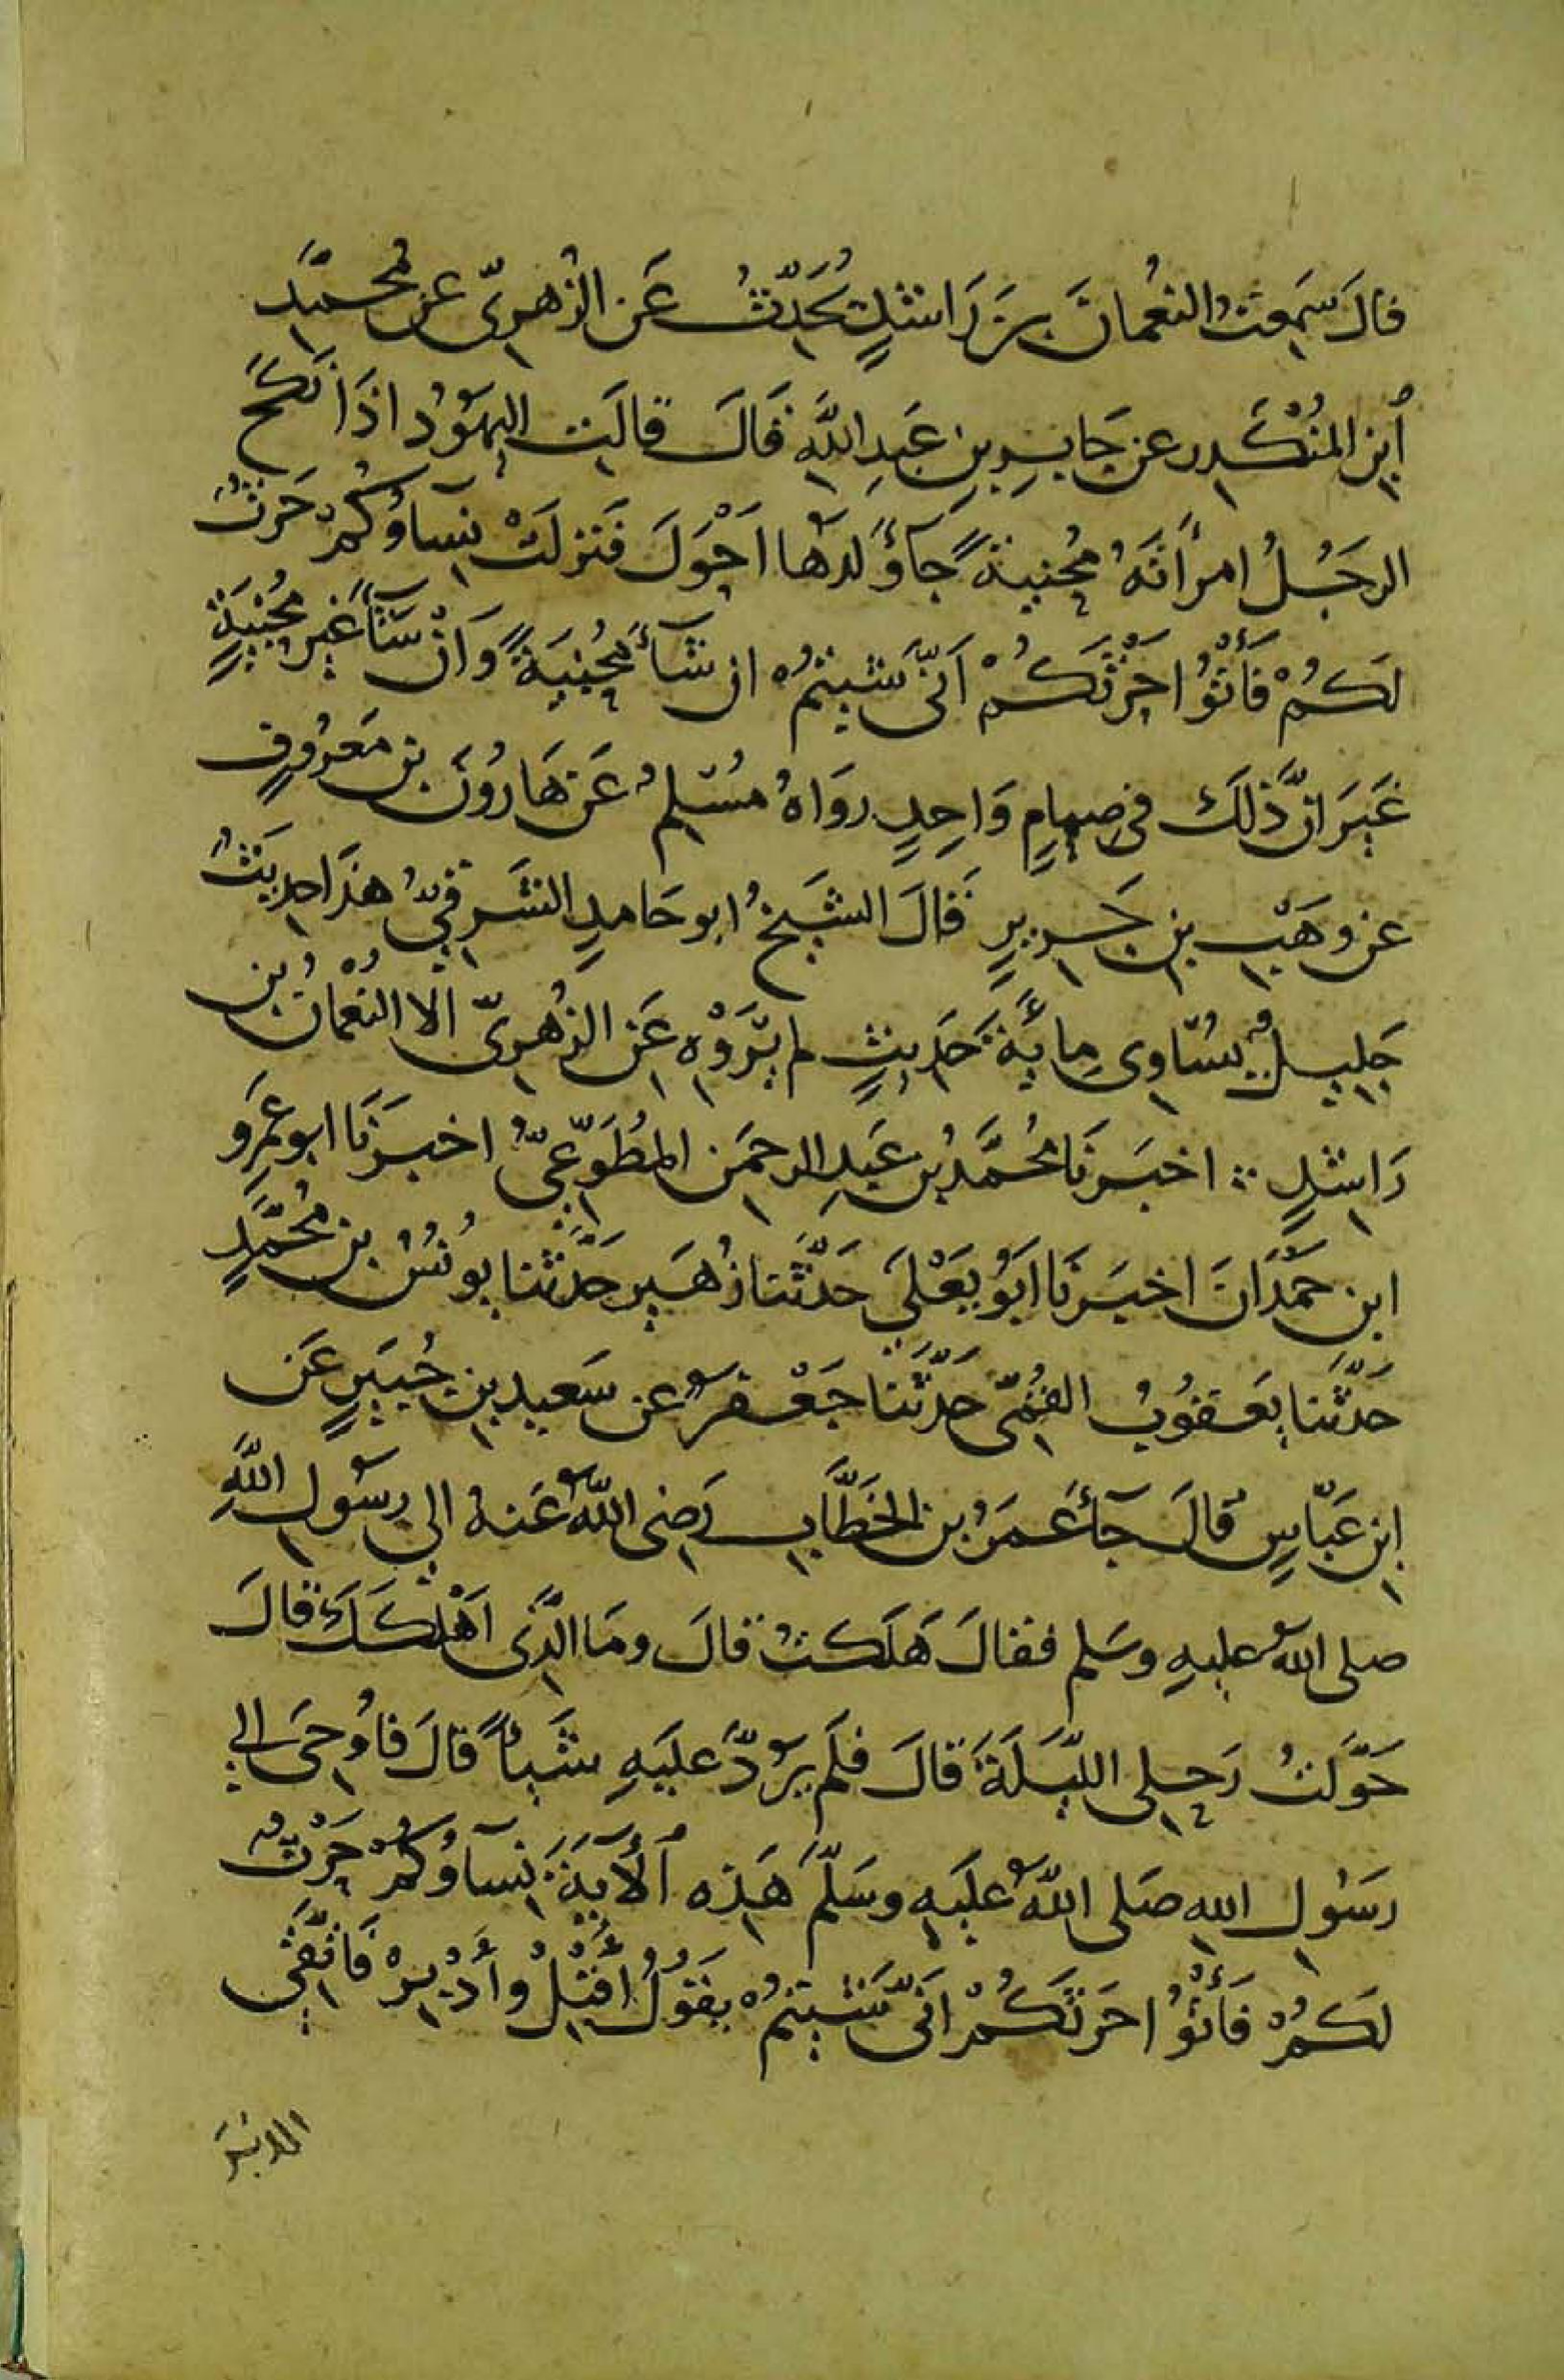 قالَ سَمِعتُ النعُمانَ بنَ رَاشدٍ يُحَدِّثُ عَن الزُهرِيّ عن مُحمَّدِ
ٱبنِ المُنْكَدِر عن جَابِرِ بنِ عَبدِ اللَّهِ قَالَ قالَتِ اليهَوُدُ اذَا نَكَحَ
الرجَُلُ امرأتَهُ مُجنِبيةً جآؤَلدُهَا اَحْوَلَ فَنزلَتْ نِسآؤُكُمْ حَرْثٌ
لَكُمْ فَأْتوُا حَرْثَكُمْ اَنّىَ شيتمُ ان شآءَ مُجنِبيَةً وَانْ شآءَ غيرَ مُجنِبيَةٍ
غَيَر انَّ ذَلكَ فى صِمامٍ وَاحِدٍ رواهُ مُسْلِمُ عَن هَارُونَ بنِ مَعرُوفٍ
عن وَهَبِ بنِ جَرِيرٍ قَالَ الشيَخُ ابو حَامدِ الشَرقيُّ هذَا حديثٌ
جَليلٌ يُساوِى مِايَةَ حَدِيثٍ لم يَرْوِهِ عَنِ الزُهرِىّ الا النُعْمانُ بُن
رَاشدٍ ∴ اخبَرنَا مُحَمَّدُ بن عَبدِ الرحمَنِ المُطَوّعِىُّ اخبَرنَا ابو عَمرِو
ابن حَمْدَانَ اخبَرنَا ابَوُ يَعْلَى حَدَّثَنا زُهَير حَدَّثَنا يوُنسُ بن مُحَمَّدٍ
حَدَّثَنا يَعقوُبُ القمُىّ حَدَّثَنا جَعْفرٌ عن سَعيدِ بنِ جُبَيرٍ عَن
ابنِ عَبّاسٍ قالَ جآءَ عمَرُ بن الخَطَّابِ رَضِى اللَّهُ عَنهُ الى رسَوُلِ اللَّهِ
صلى اللهُ عليهِ وسَلم فقالَ هَلَكتُ قالَ ومَا الَّذِى اَهْلكَكَ قالَ
حَوَّلتُ رَحِلى اللَّيلَةَ قالَ فلَم يرُدَّ عَليَهِ شَيأً قالَ فاوُحِىَ الى
رَسُولِ اللهِ صَلى اللَّهُ عَليَهِ وسَلَّمَ هَذِهِ ٱلأيَةَ نِسآؤُكُمْ حَرْثٌ
لَكمُْ فَأْتوُا حَرثَكُمْ انَّى شيتمُ يقَوُلُ اَقْبِلْ وأَدْبِرْ فاتَّقِى
الدبرَ